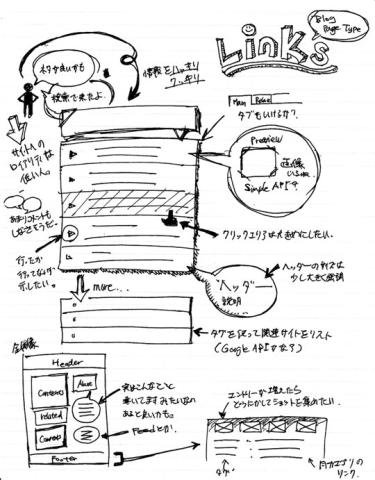 Links
Blog
Page Type
ネタが良いかも
検索で来たよ。
情報をハッキリ
クッキリ
Main | Related
タブもいけるか?
サイトへの
ロイアリティな
低い人。
Preview
画像
Simple API?
あまりコメントも
しなさそうだ。
クリックエリアは大きめにしたい。
行ったか
行ってないか
示したい。
ヘッダー
説明
ヘッダーのサイズは
少し大きく強調
more...
タグを使って関連サイトをリスト
(Google APIかな?)
全体像
Header
Contents
About
related
Footer
実はこんなこと
書いてますみたいなの
あると良いかも。
Feedとか。
エントリーが増えたら
どうにかしてショットを集めたい。
タグ
のリンク